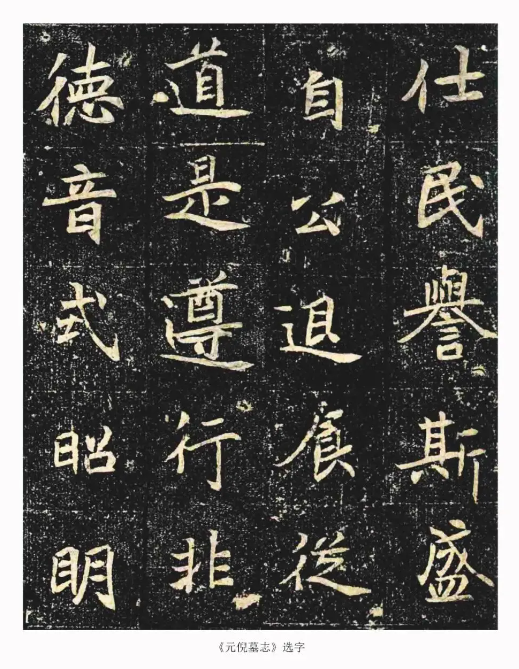 仕民譽斯盛
自公退食從
道是遵行非
德音式昭明
《元倪墓志》选字